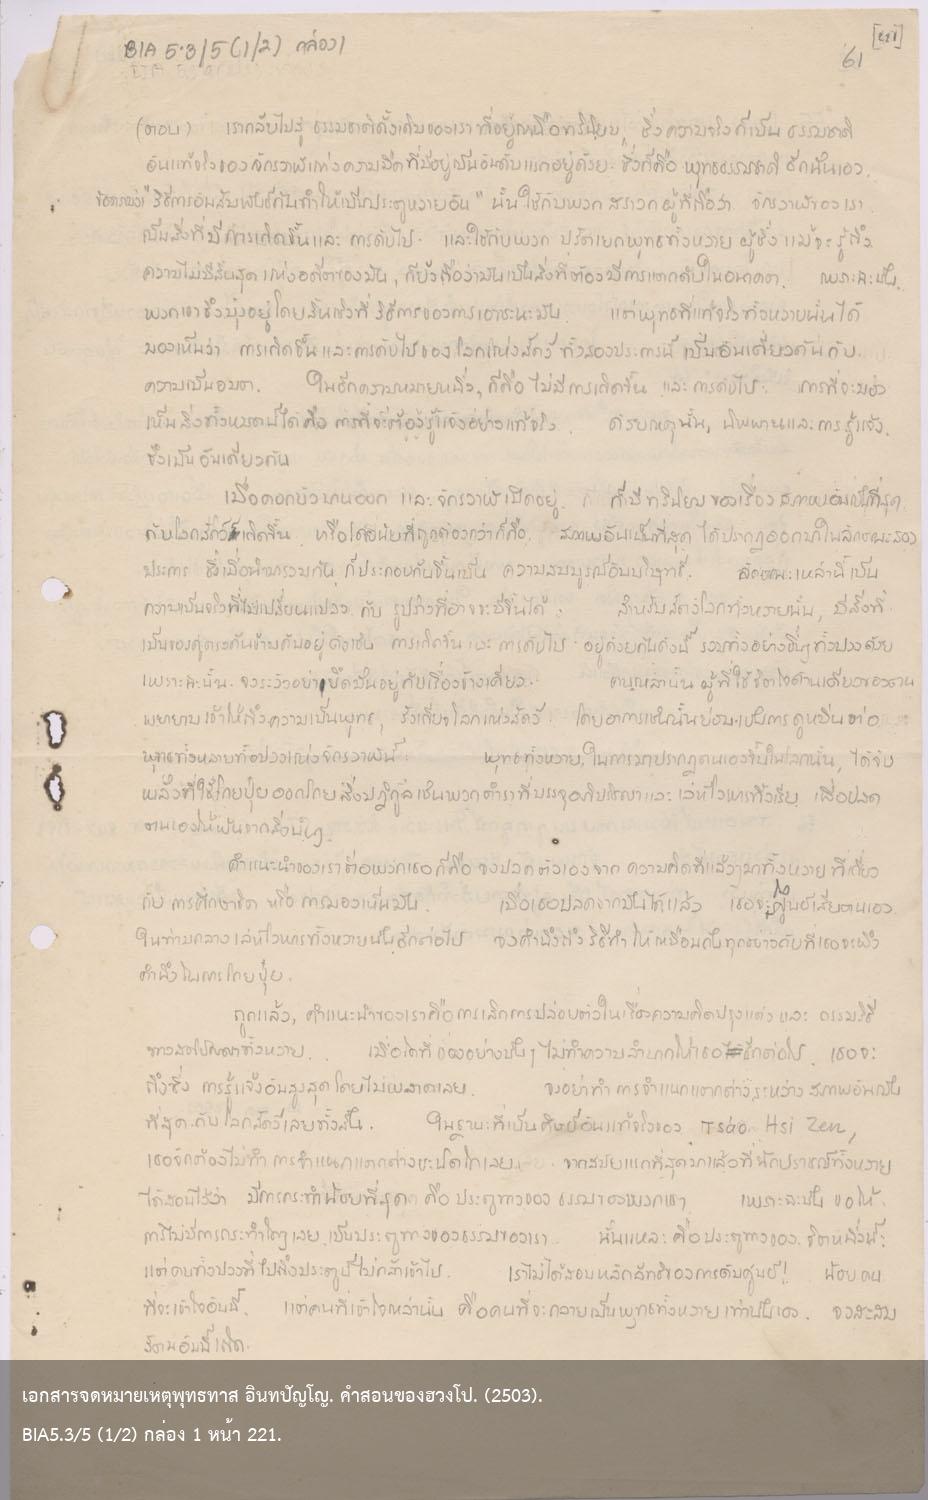 BIA 5.3/5 (1/2) กล่อง 1
[221]
61
(ตอบ) เรากลับไปสู่ ธรรมชาติดั้งเดิมของเรา ที่อยู่เหนือทวินิยม, ซึ่งความจริงก็เป็น ธรรมชาติ
อันแท้จริงของจักรวาฬแห่งความมืดที่มีอยู่เป็นอันดับแรกอยู่ด้วย ซึ่งก็คือ พุทธธรรมชาติ อีกนั่นเอง.
ข้อความว่า "วิธีการอันสัมพันธ์กันทำให้เป็นประตูหลายอัน" นั้นใช้กับพวก สราวก ผู้ที่ถือว่า จักรวาฬของเรา
เป็นสิ่งที่มีการเกิดขึ้นและ การดับไป. และใช้กับพวก ปรัตเยกพุทธทั้งหลาย ผู้ซึ่ง แม้จะรู้ถึง
ความไม่มีสิ้นสุด แห่งอดีตของมัน, ก็ยังถือว่ามันเป็นสิ่งที่ต้องมีการแตกดับในอนาคต. เพราะฉะนั้น
พวกเขาจึงมุ่งอยู่โดยสิ้นเชิงที่ วิธีการของการเอาชนะมัน. แต่พุทธที่แท้จริงทั้งหลายนั้นได้
มองเห็นว่า การเกิดขึ้น และการดับไปของ โลกแห่งสัตว์ ทั้งสองประการนี้ เป็นอันเดียวกันกับ
ความเป็นอมตะ. ในอีกความหมายหนึ่ง, ก็คือ ไม่มีการเกิดขึ้น และ การดับไป. การที่จะมอง
เห็นสิ่งทั้งหมดนี้ได้ คือ การที่จะต้องรู้แจ้งอย่างแท้จริง. ด้วยเหตุนั้น, นิพพานและการรู้แจ้ง
จึงเป็นอันเดียวกัน
เมื่อดอกบัวบานออก และ จักรวาฬเปิดอยู่, ก็มีทวินิยมของเรื่อง สภาพอันเป็นที่สุด
กับโลกสัตว์เกิดขึ้น หรือโดยนัยที่ถูกต้องกว่าก็คือ สภาพอันเป็นที่สุด ได้ปรากฏออกมาในลักษณะสอง
ประการ ซึ่งเมื่อนำมารวมกัน ก็ประกอบกันขึ้นเป็น ความสมบูรณ์อันบริสุทธิ์. ลักษณะเหล่านี้เป็น
ความเป็นจริงที่ไม่เปลี่ยนแปลง กับ รูปร่างที่อาจจะมีขึ้นได้. สำหรับสัตว์โลกทั้งหลายนั้น, มีสิ่งที่
เป็นของคู่ตรงกันข้ามกันอยู่ ดังเช่น การเกิดขึ้น และ การดับไป อยู่ด้วยกันดังนี้ รวมทั้งอย่างอื่นๆ ทั้งปวงด้วย
เพราะฉะนั้น จงระวังอย่ายึดมั่นอยู่กับเรื่องข้างเดียว. คนเหล่านั้น ผู้ที่ใช้จิตใจด้านเดียวของตน
พยายามเข้าให้ถึงความเป็นพุทธ, รังเกียจโลกแห่งสัตว์ โดยอาการเช่นนั้นย่อมเป็นการดูหมิ่นต่อ
พุทธทั้งหลายทั้งปวงแห่งจักรวาฬนี้. พุทธทั้งหลาย, ในการมาปรากฏตนเองขึ้นในโลกนั้น, ได้จับ
พลั่วที่ใช้โกยปุ๋ย ออกโกย สิ่งปฏิกูล เช่นพวกตำราที่บรรจุอภิปรัชญาและ เล่ห์ไวหารทั้งเรียบ เพื่อปลด
ตนเองให้พ้นจากสิ่งนั้นๆ
คำแนะนำของเราต่อพวกเธอ ก็คือ จงปลดตัวเองจาก ความคิดที่แล้วๆมาทั้งหลาย ที่เกี่ยว
กับ การศึกษาจิต หรือ การมองเห็นมัน. เมื่อเธอปลดจากมันได้แล้ว เธอจะไม่สูญเสียตนเอง
ในท่ามกลาง เล่ห์ไวหารทั้งหลายนั้นอีกต่อไป จงคำนึงถึง วิธีทำ ให้เหมือนกันทุกอย่างกับที่เธอจะพึง
คำนึง ในการโกยปุ๋ย.
ถูกแล้ว, คำแนะนำของเราคือการเลิกการปล่อยตัวในเรื่องความคิดปรุงแต่ง และ กรรมวิธี
เมื่อใดที่ของอย่างนั้นๆ ไม่ทำความลำบากให้เธออีกต่อไป เธอจะ
ถึงซึ่ง การรู้แจ้งอันสูงสุด โดยไม่พลาดเลย. จงอย่าทำ การจำแนกแตกต่างระหว่าง สภาพอันเป็น
ที่สุด กับ โลกสัตว์ เลยทั้งสิ้น. ในฐานะที่เป็นศิษย์อันแท้จริงของ Tsáo Hsi Zen,
เธอจักต้องไม่ทำ การจำแนกแตกต่างชนิดใดเลย. จากสมัยแรกที่สุดมาแล้วที่นักปราชญ์ทั้งหลาย
ได้สอนไว้ว่า มีการกระทำน้อยที่สุด คือ ประตูทางของ ธรรมของพวกเขา เพราะฉะนั้น ขอให้
การไม่มีการกระทำใดๆ เลย เป็นประตูทางของธรรมของเรา. นั้นแหละ คือประตูทางของ จิตหนึ่งนี้:
แต่คนทั้งปวงที่ไปถึงประตูนี้ไม่กล้าเข้าไป. เราไม่ได้สอนหลักลัทธิของการดับสูญ! น้อยคน
ที่จะเข้าใจอันนี้. แต่คนที่เข้าใจเหล่านั้น คือคนที่จะกลายเป็นพุทธทั้งหลาย เท่านั้นเอง. จงสะสม
รัตนอันนี้เถิด.
เอกสารจดหมายเหตุพุทธทาส อินทปัญโญ. คำสอนของฮวงโป. (2503).
BIA5.3/5 (1/2) กล่อง 1 หน้า 221.